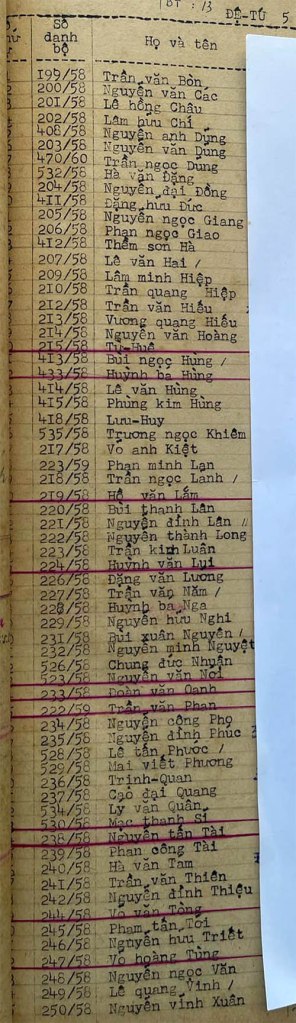 ĐT : 13
ĐỆ-TỬ 5
Số danh bộ Họ và tên
199/58 Trần văn Bòn
200/58 Nguyễn văn Các
201/58 Lê hồng Châu
202/58 Lâm hữu Chí
408/58 Nguyễn anh Dũng
203/58 Nguyễn văn Dũng
470/60 Trần ngọc Dung
532/58 Hà văn Đặng
204/58 Nguyễn đại Đồng
411/58 Đặng hữu Đức
205/58 Nguyễn ngọc Giang
206/58 Phan ngọc Giao
412/58 Thềm sơn Hà
207/58 Lê văn Hai /
209/58 Lâm minh Hiệp
210/58 Trần quang Hiệp
212/58 Trần văn Hiếu
213/58 Vương quang Hiếu
214/58 Nguyễn văn Hoàng
215/58 Từ-Huê
413/58 Bùi ngọc Hùng /
433/58 Huỳnh bá Hùng
414/58 Lê văn Hùng
415/58 Phùng kim Hùng
418/58 Lưu-Huy
535/58 Trương ngọc Khiêm
217/58 Võ anh Kiệt
223/59 Phan minh Lan
218/58 Trần ngọc Lanh /
219/58 Hồ văn Lắm
220/58 Bùi thanh Lân
221/58 Nguyễn đình Lân //
222/58 Nguyễn thành Long
223/58 Trần kinh Luân
224/58 Huỳnh văn Lụi
226/58 Đặng văn Lương
227/58 Trần văn Năm /
228/58 Huỳnh bá Nga
229/58 Nguyễn hữu Nghi
231/58 Bùi xuân Nguyên /
232/58 Nguyễn minh Nguyệt
526/58 Chung đức Nhuận
523/58 Nguyễn văn Nơi
233/58 Đoàn văn Oanh
222/59 Trần văn Phan
234/58 Nguyễn công Phọ
235/58 Nguyễn đình Phúc
528/58 Lê tấn Phước /
529/58 Mai viết Phương
236/58 Trịnh-Quan
237/58 Cao đại Quang
534/58 Lý văn Quân
530/58 Mạc thanh Sĩ
238/58 Nguyễn tấn Tài
239/58 Phan công Tài
240/58 Hà văn Tam
241/58 Trần văn Thiên
242/58 Nguyễn đình Thiệu
244/58 Võ văn Tòng
245/58 Phạm tấn Tới
246/58 Nguyễn hữu Triết
247/58 Võ hoàng Tùng
248/58 Nguyễn ngọc Văn
249/58 Lê quang Vinh /
250/58 Nguyễn vĩnh Xuân